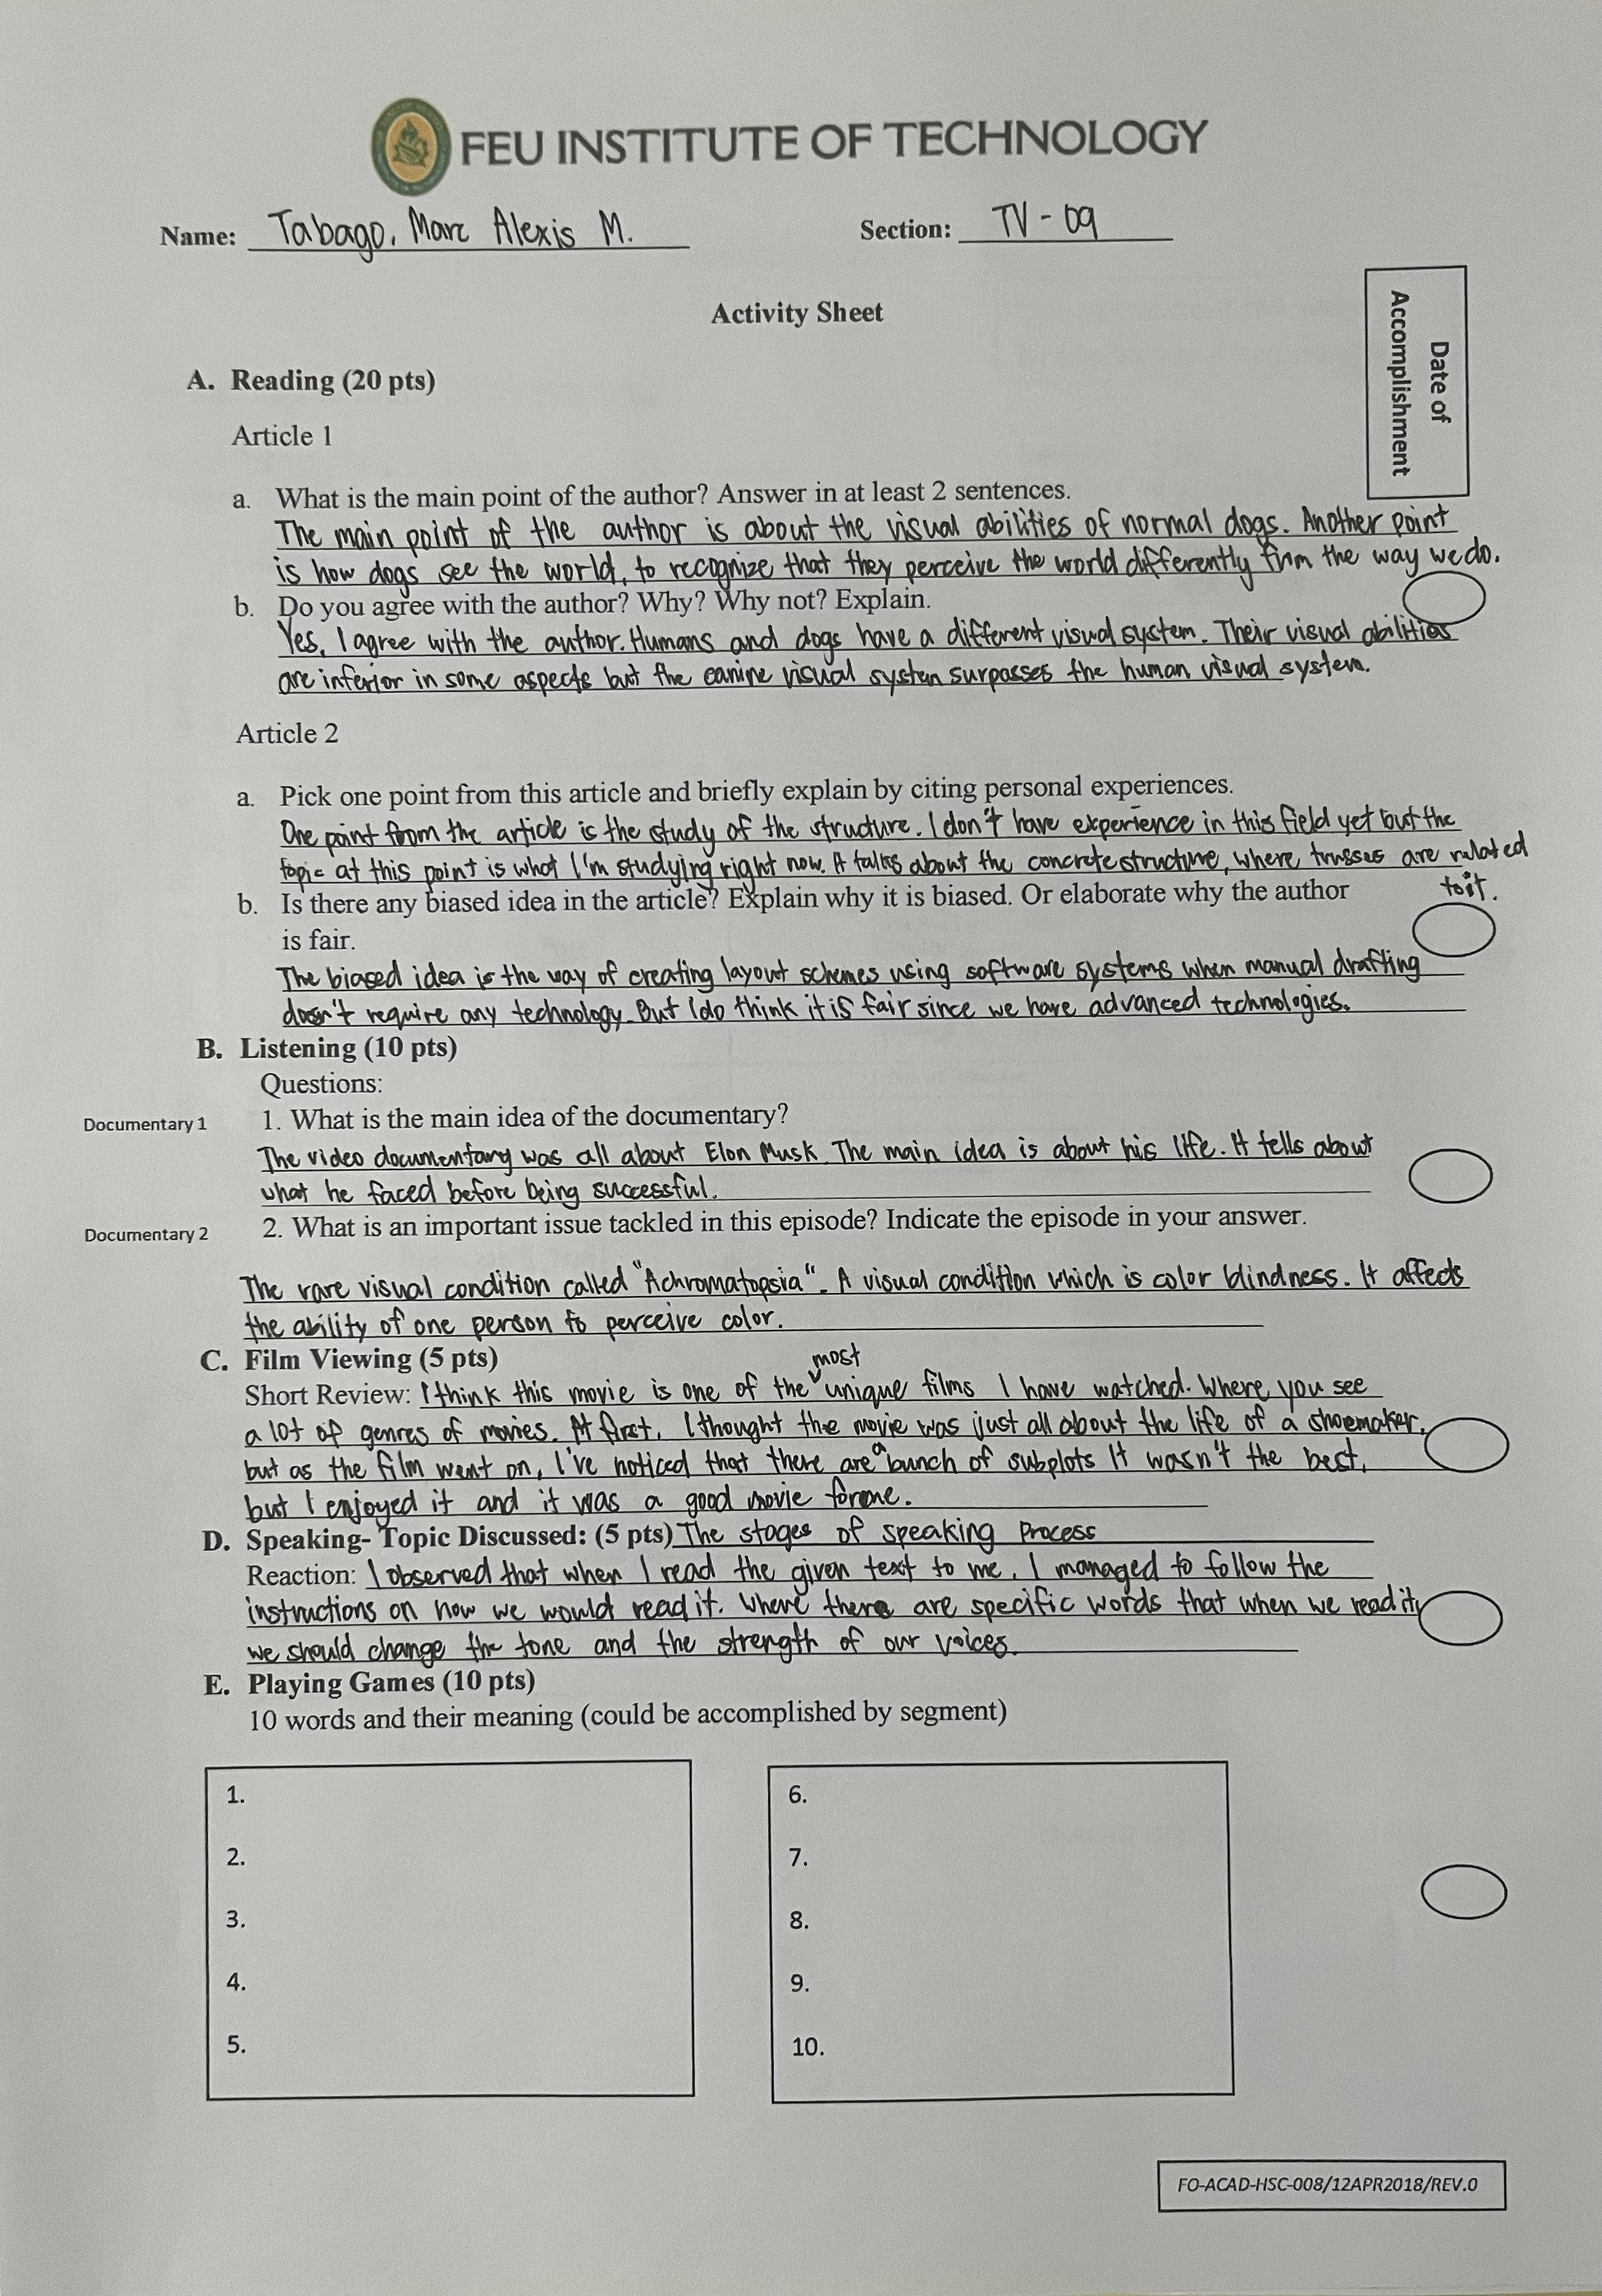 FEU INSTITUTE OF TECHNOLOGY
Name: Tabago, Marc Alexis M. Section: TV - 09
Activity Sheet
Date of
Accomplishment
A. Reading (20 pts)
Article 1
a. What is the main point of the author? Answer in at least 2 sentences.
The main point of the author is about the visual abilities of normal dogs. Another point
is how dogs see the world, to recognize that they perceive the world differently from the way we do.
b. Do you agree with the author? Why? Why not? Explain.
Yes, I agree with the author. Humans and dogs have a different visual system. Their visual abilities
are inferior in some aspects but the canine visual system surpasses the human visual system.
Article 2
a. Pick one point from this article and briefly explain by citing personal experiences.
One point from the article is the study of the structure. I don't have experience in this field yet but the
topic at this point is what I'm studying right now. It talks about the concrete structure, where trusses are related
to it.
b. Is there any biased idea in the article? Explain why it is biased. Or elaborate why the author
is fair.
The biased idea is the way of creating layout schemes using software systems when manual drafting
doesn't require any technology. But I do think it is fair since we have advanced technologies.
B. Listening (10 pts)
Questions:
Documentary 1 1. What is the main idea of the documentary?
The video documentary was all about Elon Musk. The main idea is about his life. It tells about
what he faced before being successful.
Documentary 2 2. What is an important issue tackled in this episode? Indicate the episode in your answer.
The rare visual condition called "Achromatopsia". A visual condition which is color blindness. It affects
the ability of one person to perceive color.
C. Film Viewing (5 pts)
Short Review: I think this movie is one of the most unique films I have watched. Where you see
a lot of genres of movies. At first, I thought the movie was just all about the life of a shoemaker,
but as the film went on, I've noticed that there are a bunch of subplots It wasn't the best,
but I enjoyed it and it was a good movie for me.
D. Speaking- Topic Discussed: (5 pts) The stages of speaking Process
Reaction: I observed that when I read the given text to me, I managed to follow the
instructions on how we would read it. Where there are specific words that when we read it,
we should change the tone and the strength of our voices.
E. Playing Games (10 pts)
10 words and their meaning (could be accomplished by segment)
1.
2.
3.
4.
5.
6.
7.
8.
9.
10.
FO-ACAD-HSC-008/12APR2018/REV.0